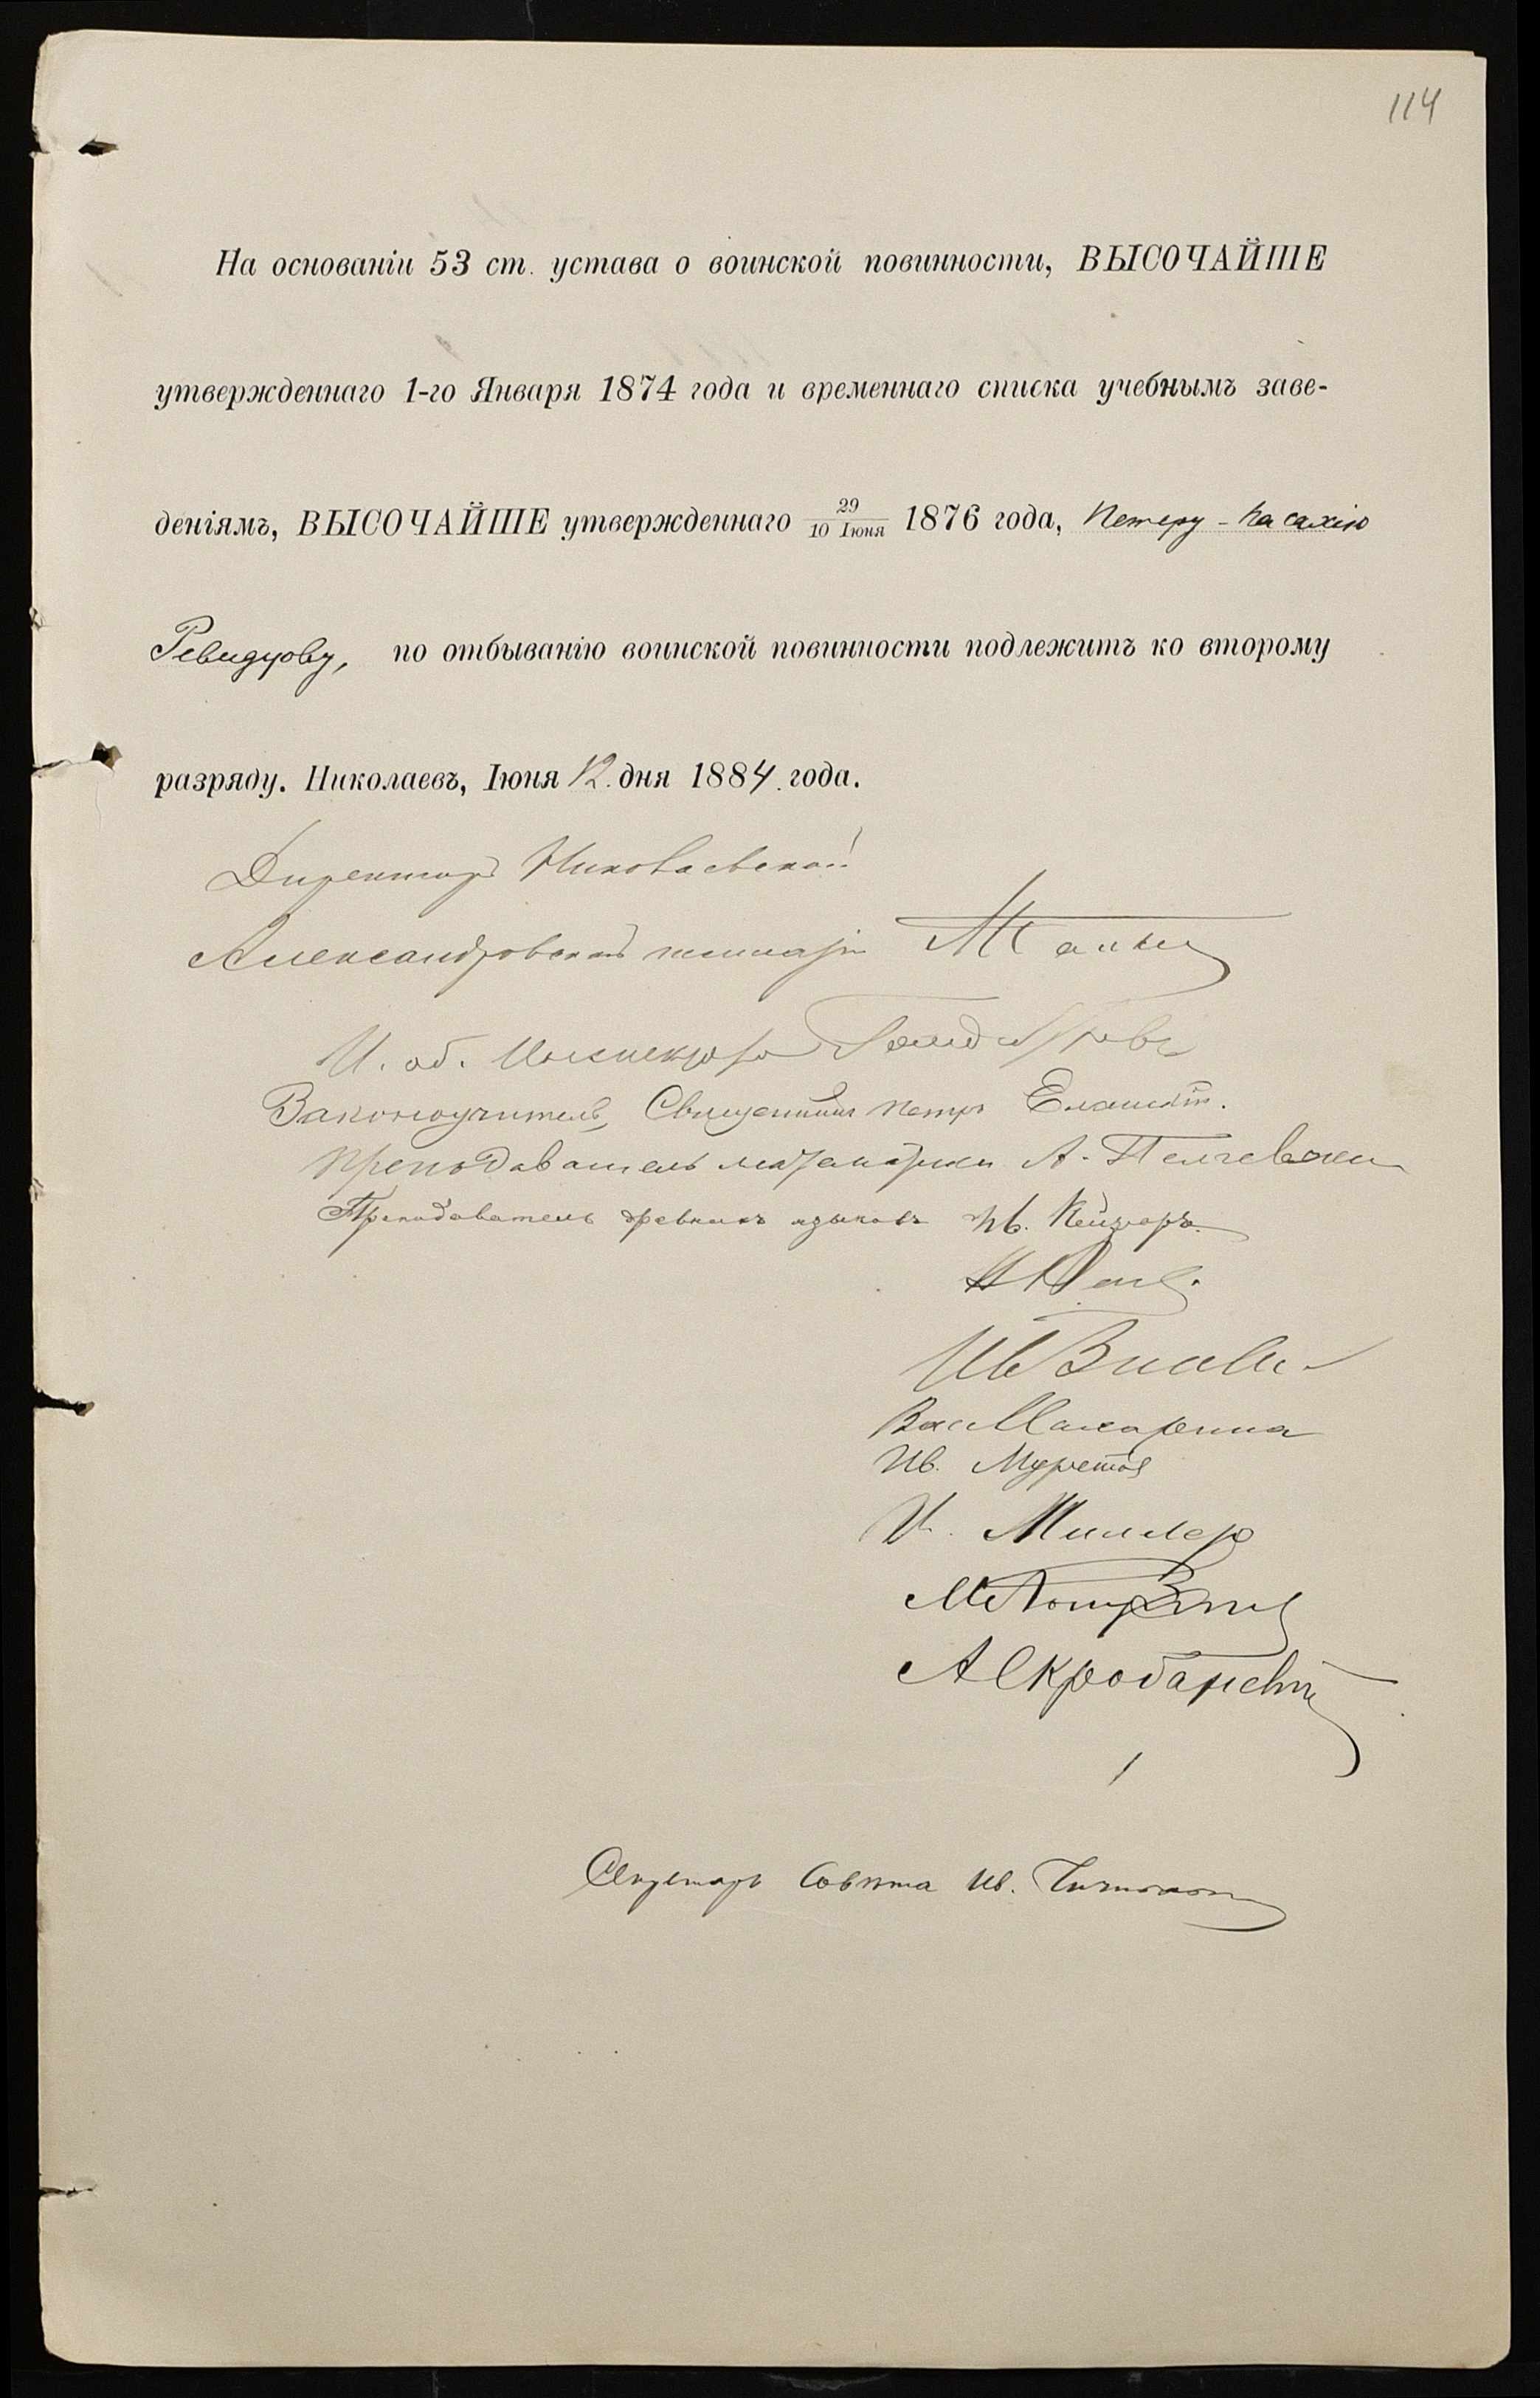 114
На основаніи 53 ст. устава о воинской повинности, ВЫСОЧАЙШЕ
утвержденнаго 1-го Января 1874 года и временнаго списка учебнымъ заве-
деніямъ, ВЫСОЧАЙШЕ утвержденнаго 29/10 Іюня 1876 года, Петеру-
по отбыванію воинской повинности подлежитъ ко второму
разряду. Николаевъ, Іюня 12 дня 1884 года.
Директоръ Николаевской
Александровской
И. об. Инспектора
Законоучитель, Священникъ Петръ
Преподаватель математики А.
Преподаватель древнихъ языковъ Ив. Кейзеръ
Ив
Вас Макарина
Ив. Муретов
И. Миллер
М
А Скробаневич
Секретарь Совѣта Ив.